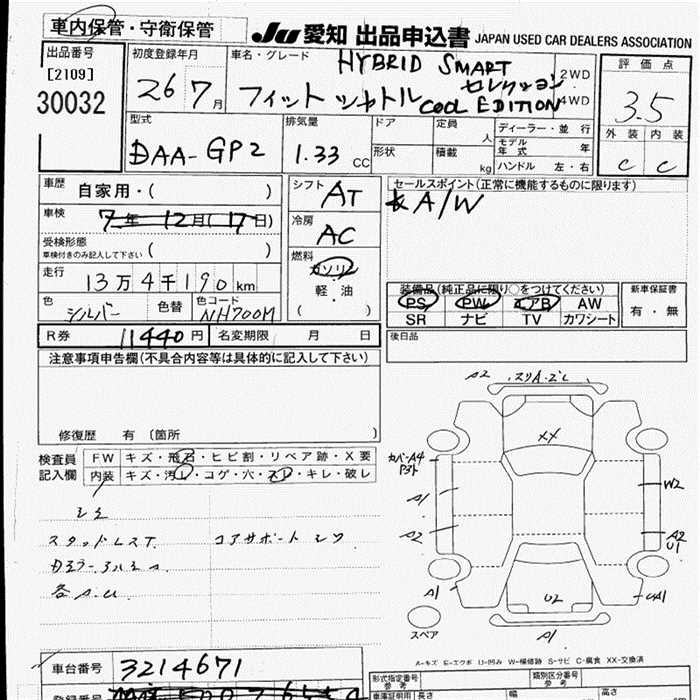 車内保管・守衛保管
JU 愛知 出品申込書 JAPAN USED CAR DEALERS ASSOCIATION
出品番号
[2109]
30032
初度登録年月
26 7月
車名・グレード
HYBRID SMART
セレクション
フィット シャトル COOL EDITION
2WD
4WD
評価点
3.5
外装 内装
C C
型式
DAA-GP2
排気量
1.33 CC
ドア
定員
人
形状
積載
kg
ディーラー・並行
モデル年式 年
ハンドル 左・右
車歴
自家用・( )
車検
7年 12月(17日)
受検形態
車検付きのみ記入して下さい ( )
走行
13万4千190km
色
シルバー
色替
色コード
NH700M
シフト
AT
冷房
AC
燃料
ガソリン
軽・油
( )
セールスポイント(正常に機能するものに限ります)
A/W
装備品(純正品に限り○をつけてください)
PS PW エアB AW
SR ナビ TV カワシート
新車保証書
有・無
R券 11440円
名変期限 月 日
後日品
注意事項申告欄(不具合内容等は具体的に記入して下さい)
修復歴 有 (箇所 )
検査員記入欄
FW キズ・飛石・ヒビ割・リペア跡・X要
内装 キズ・汚レ・コゲ・穴・スレ・キレ・破レ
シミ
スタッドレスT.
コアサポート
各A.U
A2
XX
カバーA4
A1
A2
A1
W2
A2
U1
U2
UA1
A1
スペア
A-キズ E-エクボ U-凹み W-補修跡 S-サビ C-腐食 XX-交換済
車台番号
3214671
登録番号
形式指定番号
参考
類別区分番号
参考
車庫証明用
長さ
幅
高さ